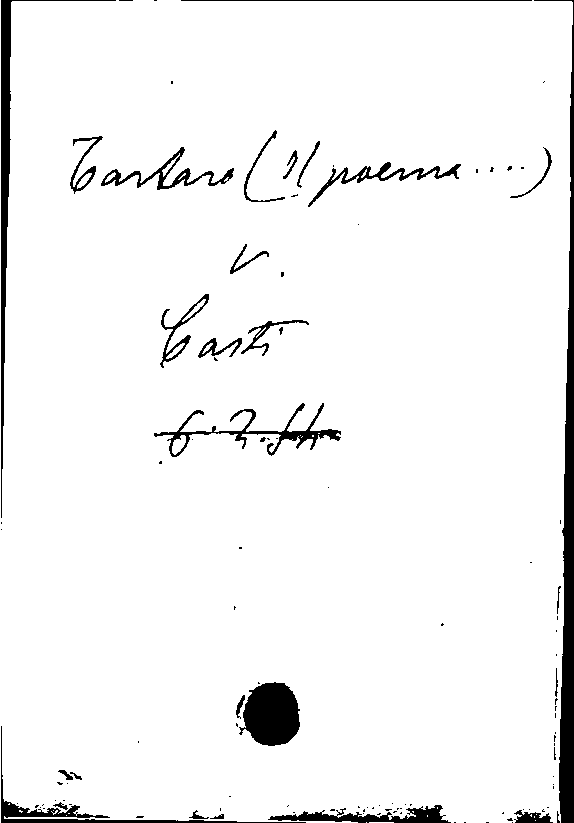 Tartaro (Il poema....)
v.
Casti
6.2.54